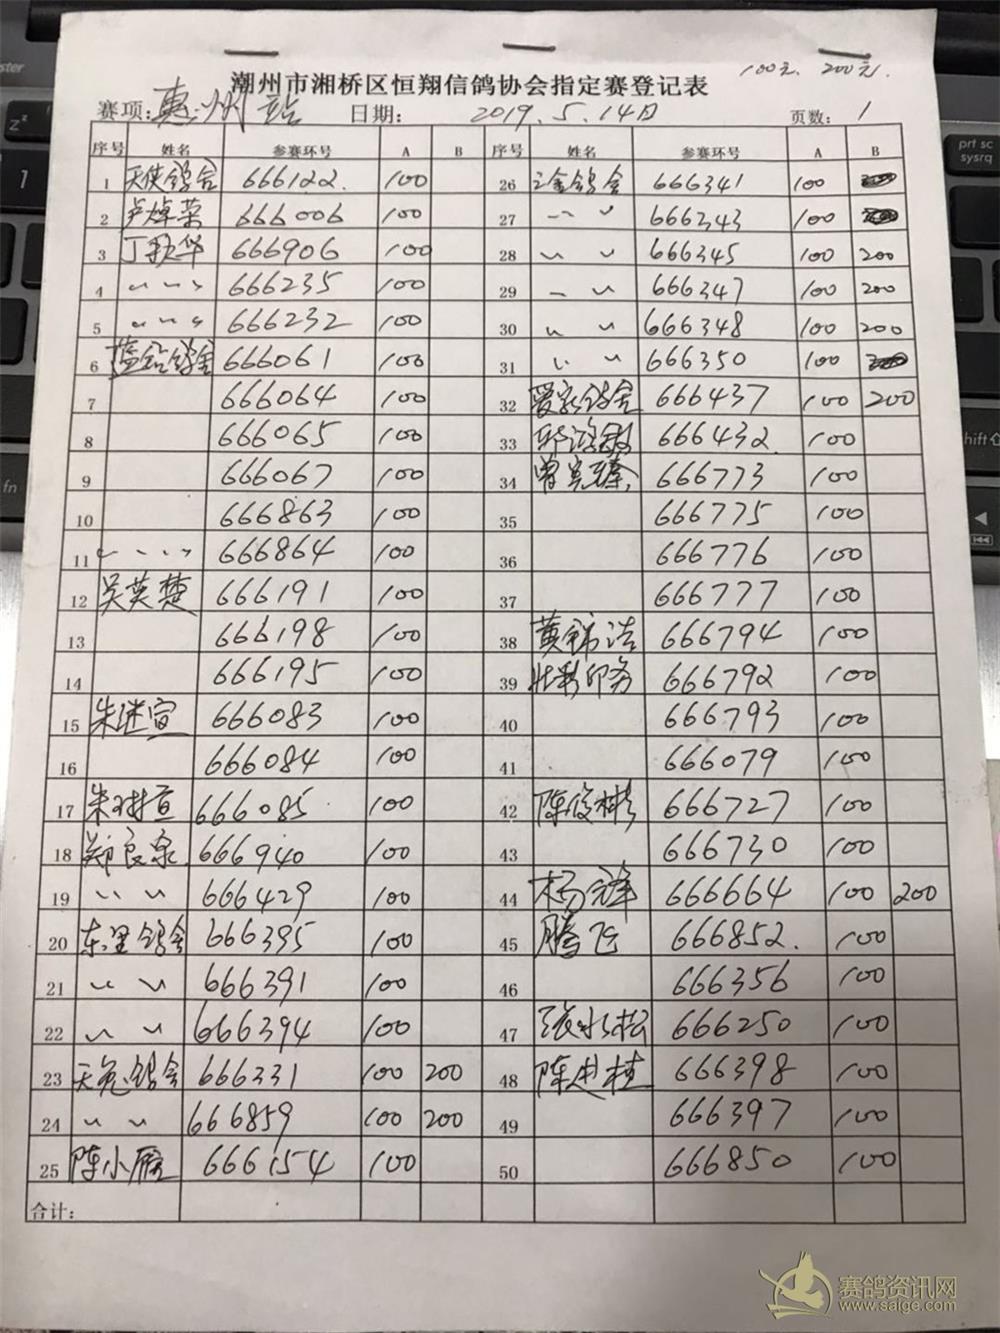 100元. 200元.
潮州市湘桥区恒翔信鸽协会指定赛登记表
赛项: 惠州站 日期: 2019.5.14日 页数: 1
序号 姓名 参赛环号 A B 序号 姓名 参赛环号 A B
1 天使鸽舍 666122. 100 26 鸽舍 666341 100
2 卢焯荣 666006 100 27 666343 100
3 丁 华 666906 100 28 " " 666345 100 200
4 " " " 666235 100 29 " 666347 100 200
5 " " " 666232 100 30 " " 666348 100 200
6 鸽舍 666061 100 31 " " 666350 100
7 666064 100 32 爱家鸽舍 666437 100 200
8 666065 100 33 666432. 100
9 666067 100 34 曾 666773 100
10 666863 100 35 666775 100
11 " " " " 666864 100 36 666776 100
12 吴英楚 666191 100 37 666777 100
13 666198 100 38 黄锦浩 666794 100
14 666195 100 39 彩印务 666792 100
15 朱继宣 666083 100 40 666793 100
16 666084 100 41 666079 100
17 朱 宣 666085 100 42 陈俊彬 666727 100
18 郑良泉. 666940 100 43 666730 100
19 " " 666429 100 44 杨 666664 100 200
20 东里鸽舍 666395 100 45 腾飞 666852. 100
21 " " 666391 100 46 666356 100
22 " " 666394 100 47 张水松 666250 100
23 天兔鸽舍 666331 100 200 48 陈建植 666398 100
24 " " 666859 100 200 49 666397 100
25 陈小雁 666154 100 50 666850 100
合计:
赛鸽资讯网
www.saige.com
prt sc
sysrq
fn
shift